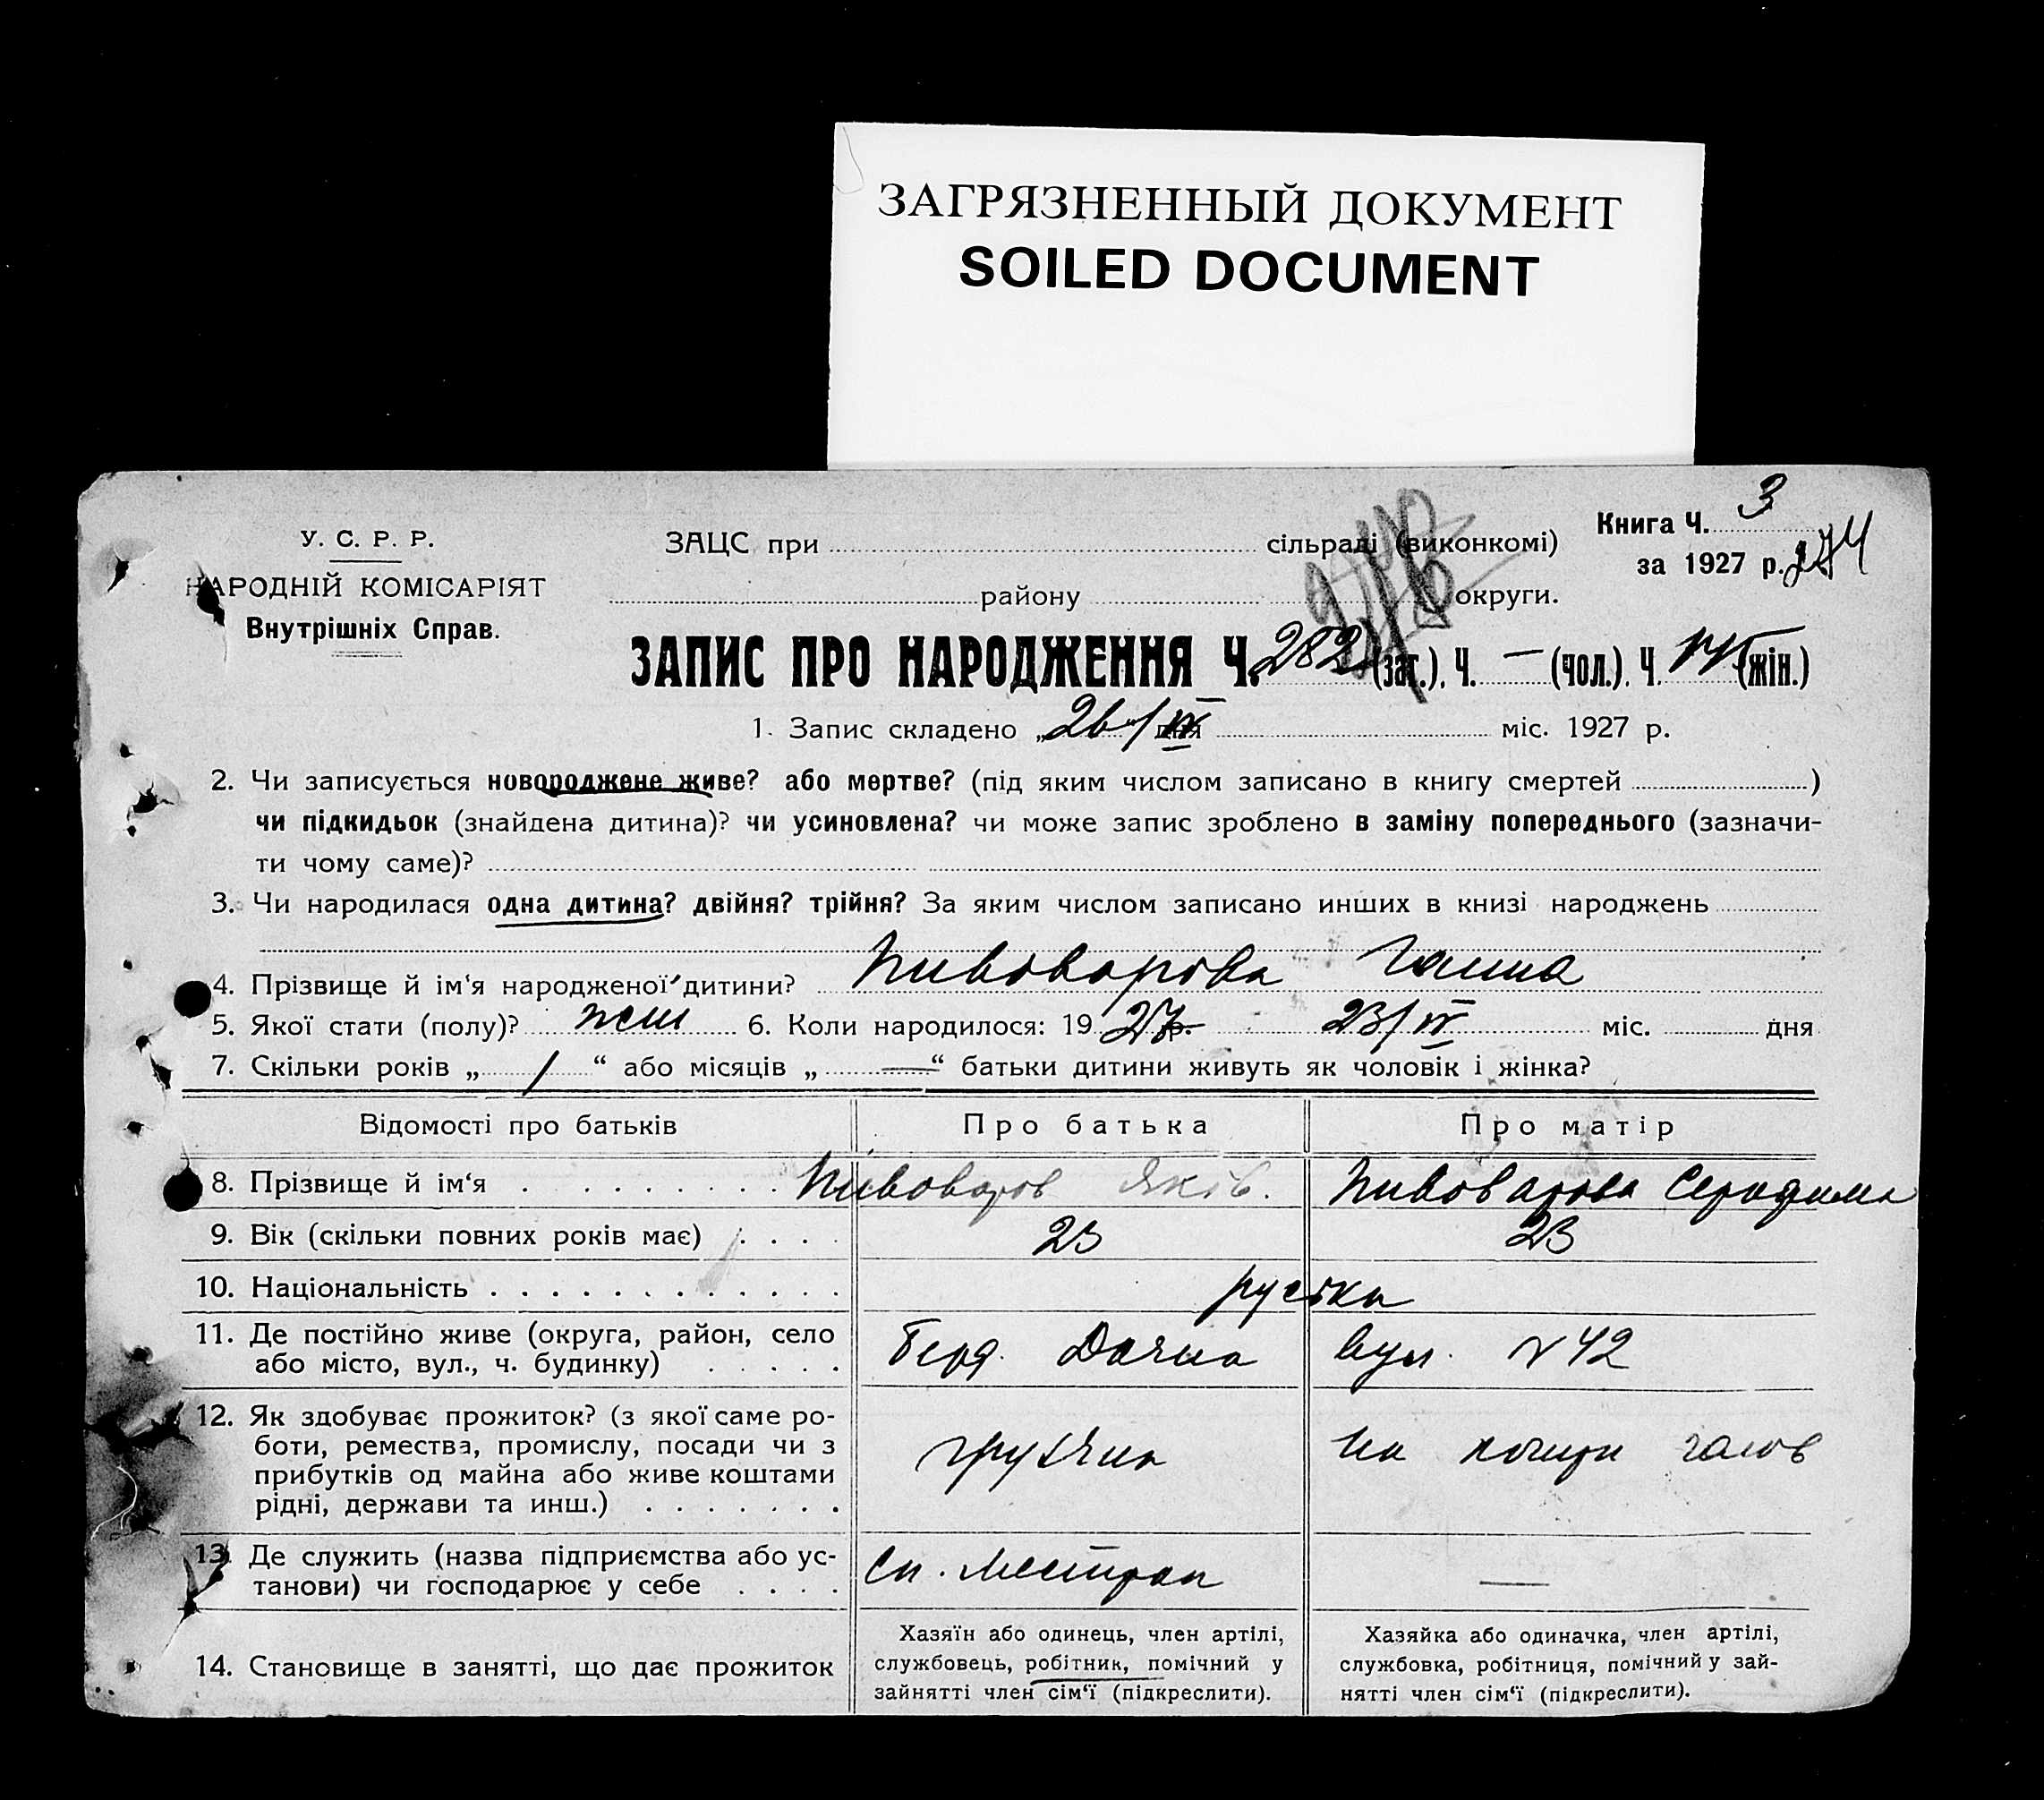 ЗАГРЯЗНЕННЫЙ ДОКУМЕНТ
SOILED DOCUMENT
У. С. Р. Р.
НАРОДНІЙ КОМІСАРІЯТ
Внутрішніх Справ.
ЗАЦС при сільраді (виконкомі)
району округи.
Книга Ч. 3
за 1927 р. 274
ЗАПИС ПРО НАРОДЖЕННЯ Ч. 282 (заг.). Ч. — (чол.). Ч. (жін.)
1. Запис складено „26/IV дня міс. 1927 р.
2. Чи записується новороджене живе? або мертве? (під яким числом записано в книгу смертей )
чи підкидьок (знайдена дитина)? чи усиновлена? чи може запис зроблено в заміну попереднього (зазначи-
ти чому саме)?
3. Чи народилася одна дитина? двійня? трійня? За яким числом записано инших в книзі народжень
4. Прізвище й ім‘я народженої дитини? Пивоварова Ганна
5. Якої стати (полу)? жін 6. Коли народилося: 1927 р. 23/IV міс. дня
7. Скільки років „ 1 “ або місяців „ — “ батьки дитини живуть як чоловік і жінка?
Відомості про батьків Про батька Про матір
8. Прізвище й ім‘я Пивоваров Яків. Пивоварова Серафима
9. Вік (скільки повних років має) 23 23
10. Національність руська
11. Де постійно живе (округа, район, село
або місто, вул., ч. будинку)
Берд. Дачна вул. № 42
12. Як здобуває прожиток? (з якої саме ро-
боти, ремества, промислу, посади чи з
прибутків од майна або живе коштами
рідні, держави та инш.)
на кошти голов
13. Де служить (назва підприємства або ус-
танови) чи господарює у себе
—
14. Становище в занятті, що дає прожиток
Хазяїн або одинець, член артілі,
службовець, робітник, помічний у
зайнятті член сім‘ї (підкреслити).
Хазяйка або одиначка, член артілі,
службовка, робітниця, помічний у зай-
нятті член сім‘ї (підкреслити).